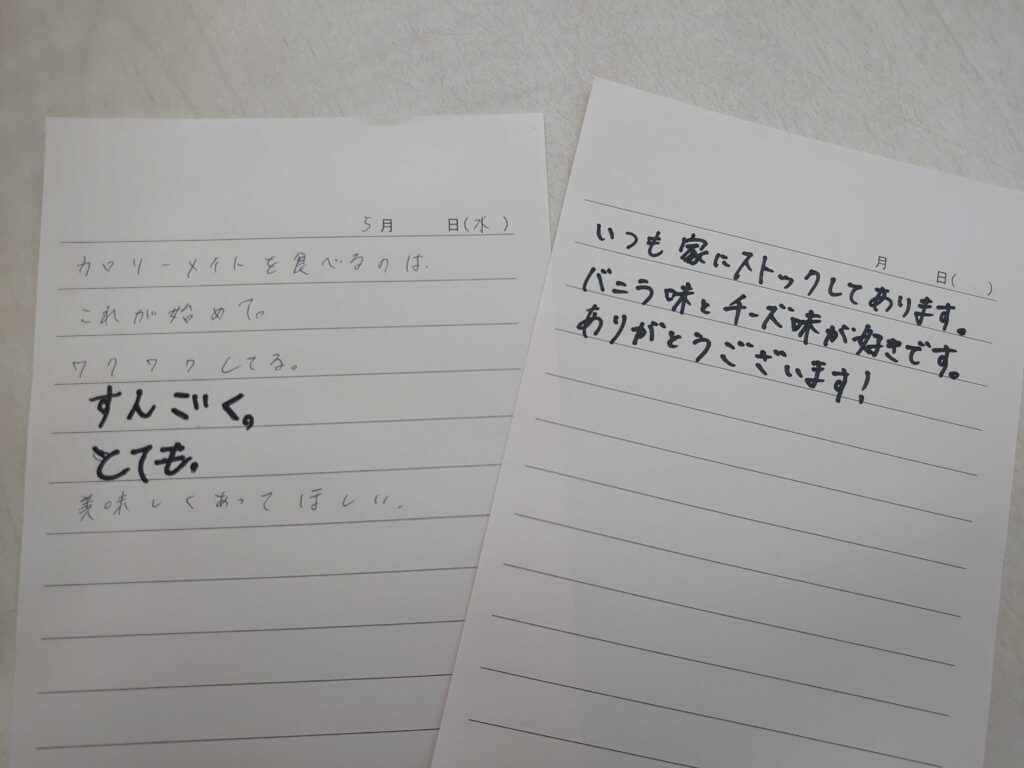 5月 日(水)
カロリーメイトを食べるのは
これが始めて。
ワクワクしてる。
すんごく。
とても。
美味しくあってほしい。
月 日( )
いつも家にストックしてあります。
バニラ味とチーズ味が好きです。
ありがとうございます!